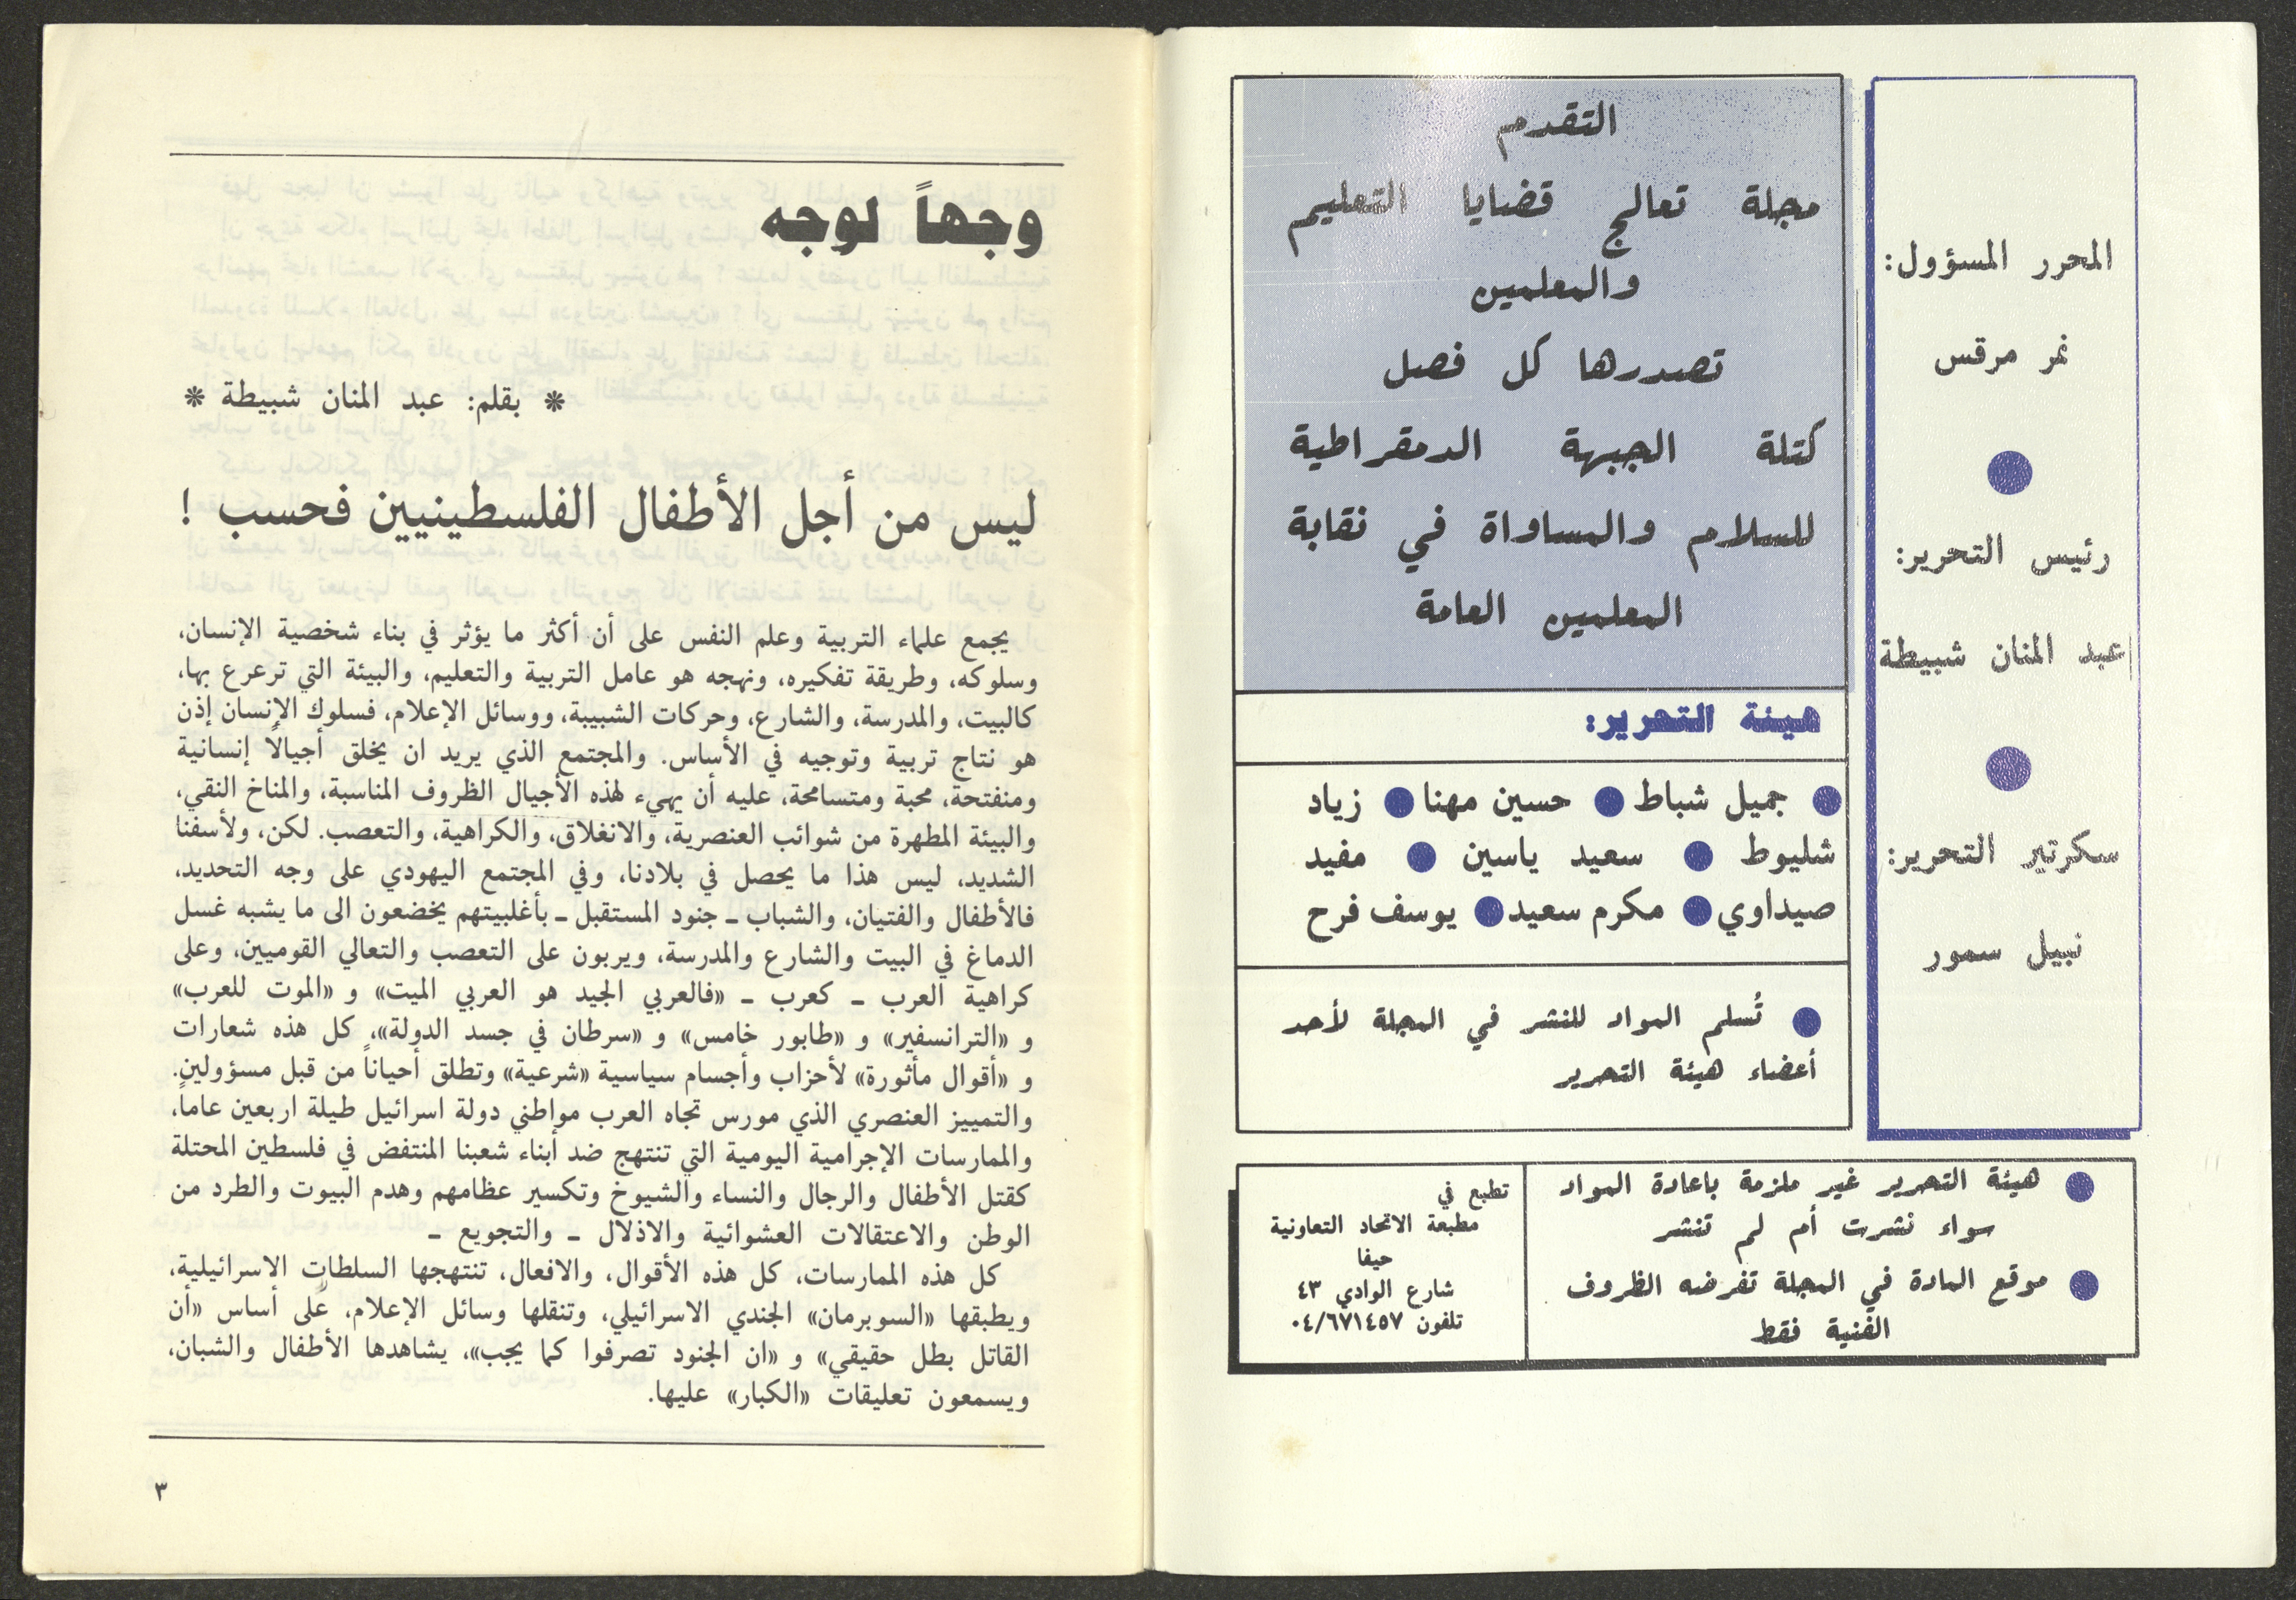 المحرر المسؤول:
نمر مرقس
رئيس التحرير:
عبد المنان شبيطة
سكرتير التحرير:
نبيل سمور
التقدم
مجلة تعالج قضايا التعليم
والمعلمين
تصدرها كل فصل
كتلة الجبهة الدمقراطية
للسلام والمساواة في نقابة
المعلمين العامة
هيئة التحرير:
● جميل شباط ● حسين مهنا ● زياد
شليوط ● سعيد ياسين ● مفيد
صيداوي ● مكرم سعيد ● يوسف فرح
● تُسلم المواد للنشر في المجلة لأحد
أعضاء هيئة التحرير
● هيئة التحرير غير ملزمة باعادة المواد
سواء نشرت أم لم تنشر
● موقع المادة في المجلة تفرضه الظروف
الفنية فقط
تطبع في
مطبعة الاتحاد التعاونية
حيفا
شارع الوادي ٤٣
تلفون ٠٤/٦٧١٤٥٧
وجهاً لوجه
* بقلم: عبد المنان شبيطة *
ليس من أجل الأطفال الفلسطينيين فحسب !
يجمع علماء التربية وعلم النفس على أن أكثر ما يؤثر في بناء شخصية الإنسان،
وسلوكه، وطريقة تفكيره، ونهجه هو عامل التربية والتعليم، والبيئة التي ترعرع بها،
كالبيت، والمدرسة، والشارع، وحركات الشبيبة، ووسائل الإعلام، فسلوك الإنسان إذن
هو نتاج تربية وتوجيه في الأساس. والمجتمع الذي يريد ان يخلق أجيالاً إنسانية
ومنفتحة، محبة ومتسامحة، عليه أن يهيء لهذه الأجيال الظروف المناسبة، والمناخ النقي،
والبيئة المطهرة من شوائب العنصرية، والانغلاق، والكراهية، والتعصب. لكن، ولأسفنا
الشديد، ليس هذا ما يحصل في بلادنا، وفي المجتمع اليهودي على وجه التحديد،
فالأطفال والفتيان، والشباب ـ جنود المستقبل ـ بأغلبيتهم يخضعون الى ما يشبه غسل
الدماغ في البيت والشارع والمدرسة، ويربون على التعصب والتعالي القوميين، وعلى
كراهية العرب ـ كعرب ـ «فالعربي الجيد هو العربي الميت» و «الموت للعرب»
و «الترانسفير» و «طابور خامس» و «سرطان في جسد الدولة»، كل هذه شعارات
و «أقوال مأثورة» لأحزاب وأجسام سياسية «شرعية» وتطلق أحياناً من قبل مسؤولين.
والتمييز العنصري الذي مورس تجاه العرب مواطني دولة اسرائيل طيلة اربعين عاماً،
والممارسات الإجرامية اليومية التي تنتهج ضد أبناء شعبنا المنتفض في فلسطين المحتلة
كقتل الأطفال والرجال والنساء والشيوخ وتكسير عظامهم وهدم البيوت والطرد من
الوطن والاعتقالات العشوائية والاذلال ـ والتجويع ـ
كل هذه الممارسات، كل هذه الأقوال، والافعال، تنتهجها السلطات الاسرائيلية،
ويطبقها «السوبرمان» الجندي الاسرائيلي، وتنقلها وسائل الإعلام، على أساس «أن
القاتل بطل حقيقي» و «ان الجنود تصرفوا كما يجب»، يشاهدها الأطفال والشبان،
ويسمعون تعليقات «الكبار» عليها.
٣